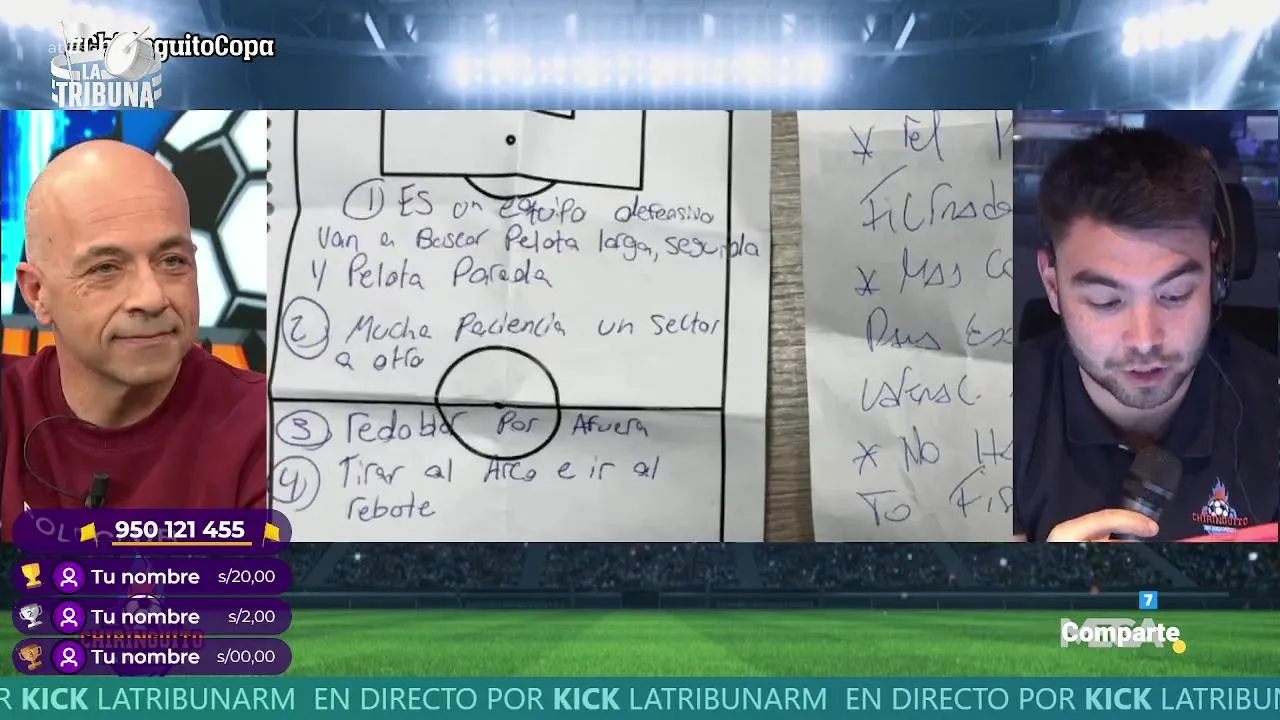 LA
TRIBUNA
guitoCopa
1 Es un equipo defensivo
Van a Buscar Pelota larga, segunda
y Pelota Parada
2 Mucha Paciencia un sector
a otro
3 redoblar Por Afuera
4 Tirar al Arco e ir al
rebote
* Tel
* Mas
* No
To
CHIRINGUITO
950 121 455
Tu nombre s/20,00
Tu nombre s/2,00
Tu nombre s/00,00
CHIRINGUITO
7
MEGA
Comparte
R KICK LATRIBUNARM EN DIRECTO POR KICK LATRIBUNARM EN DIRECTO POR KICK LATRIBU